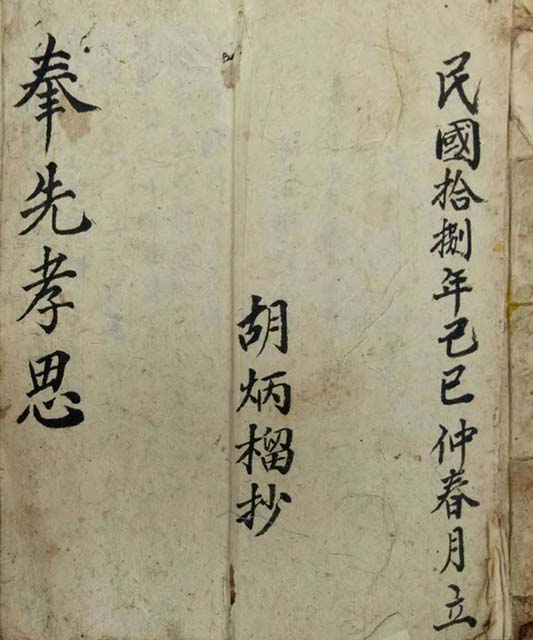 民國拾捌年己巳仲春月立
胡炳榴抄
奉先孝思